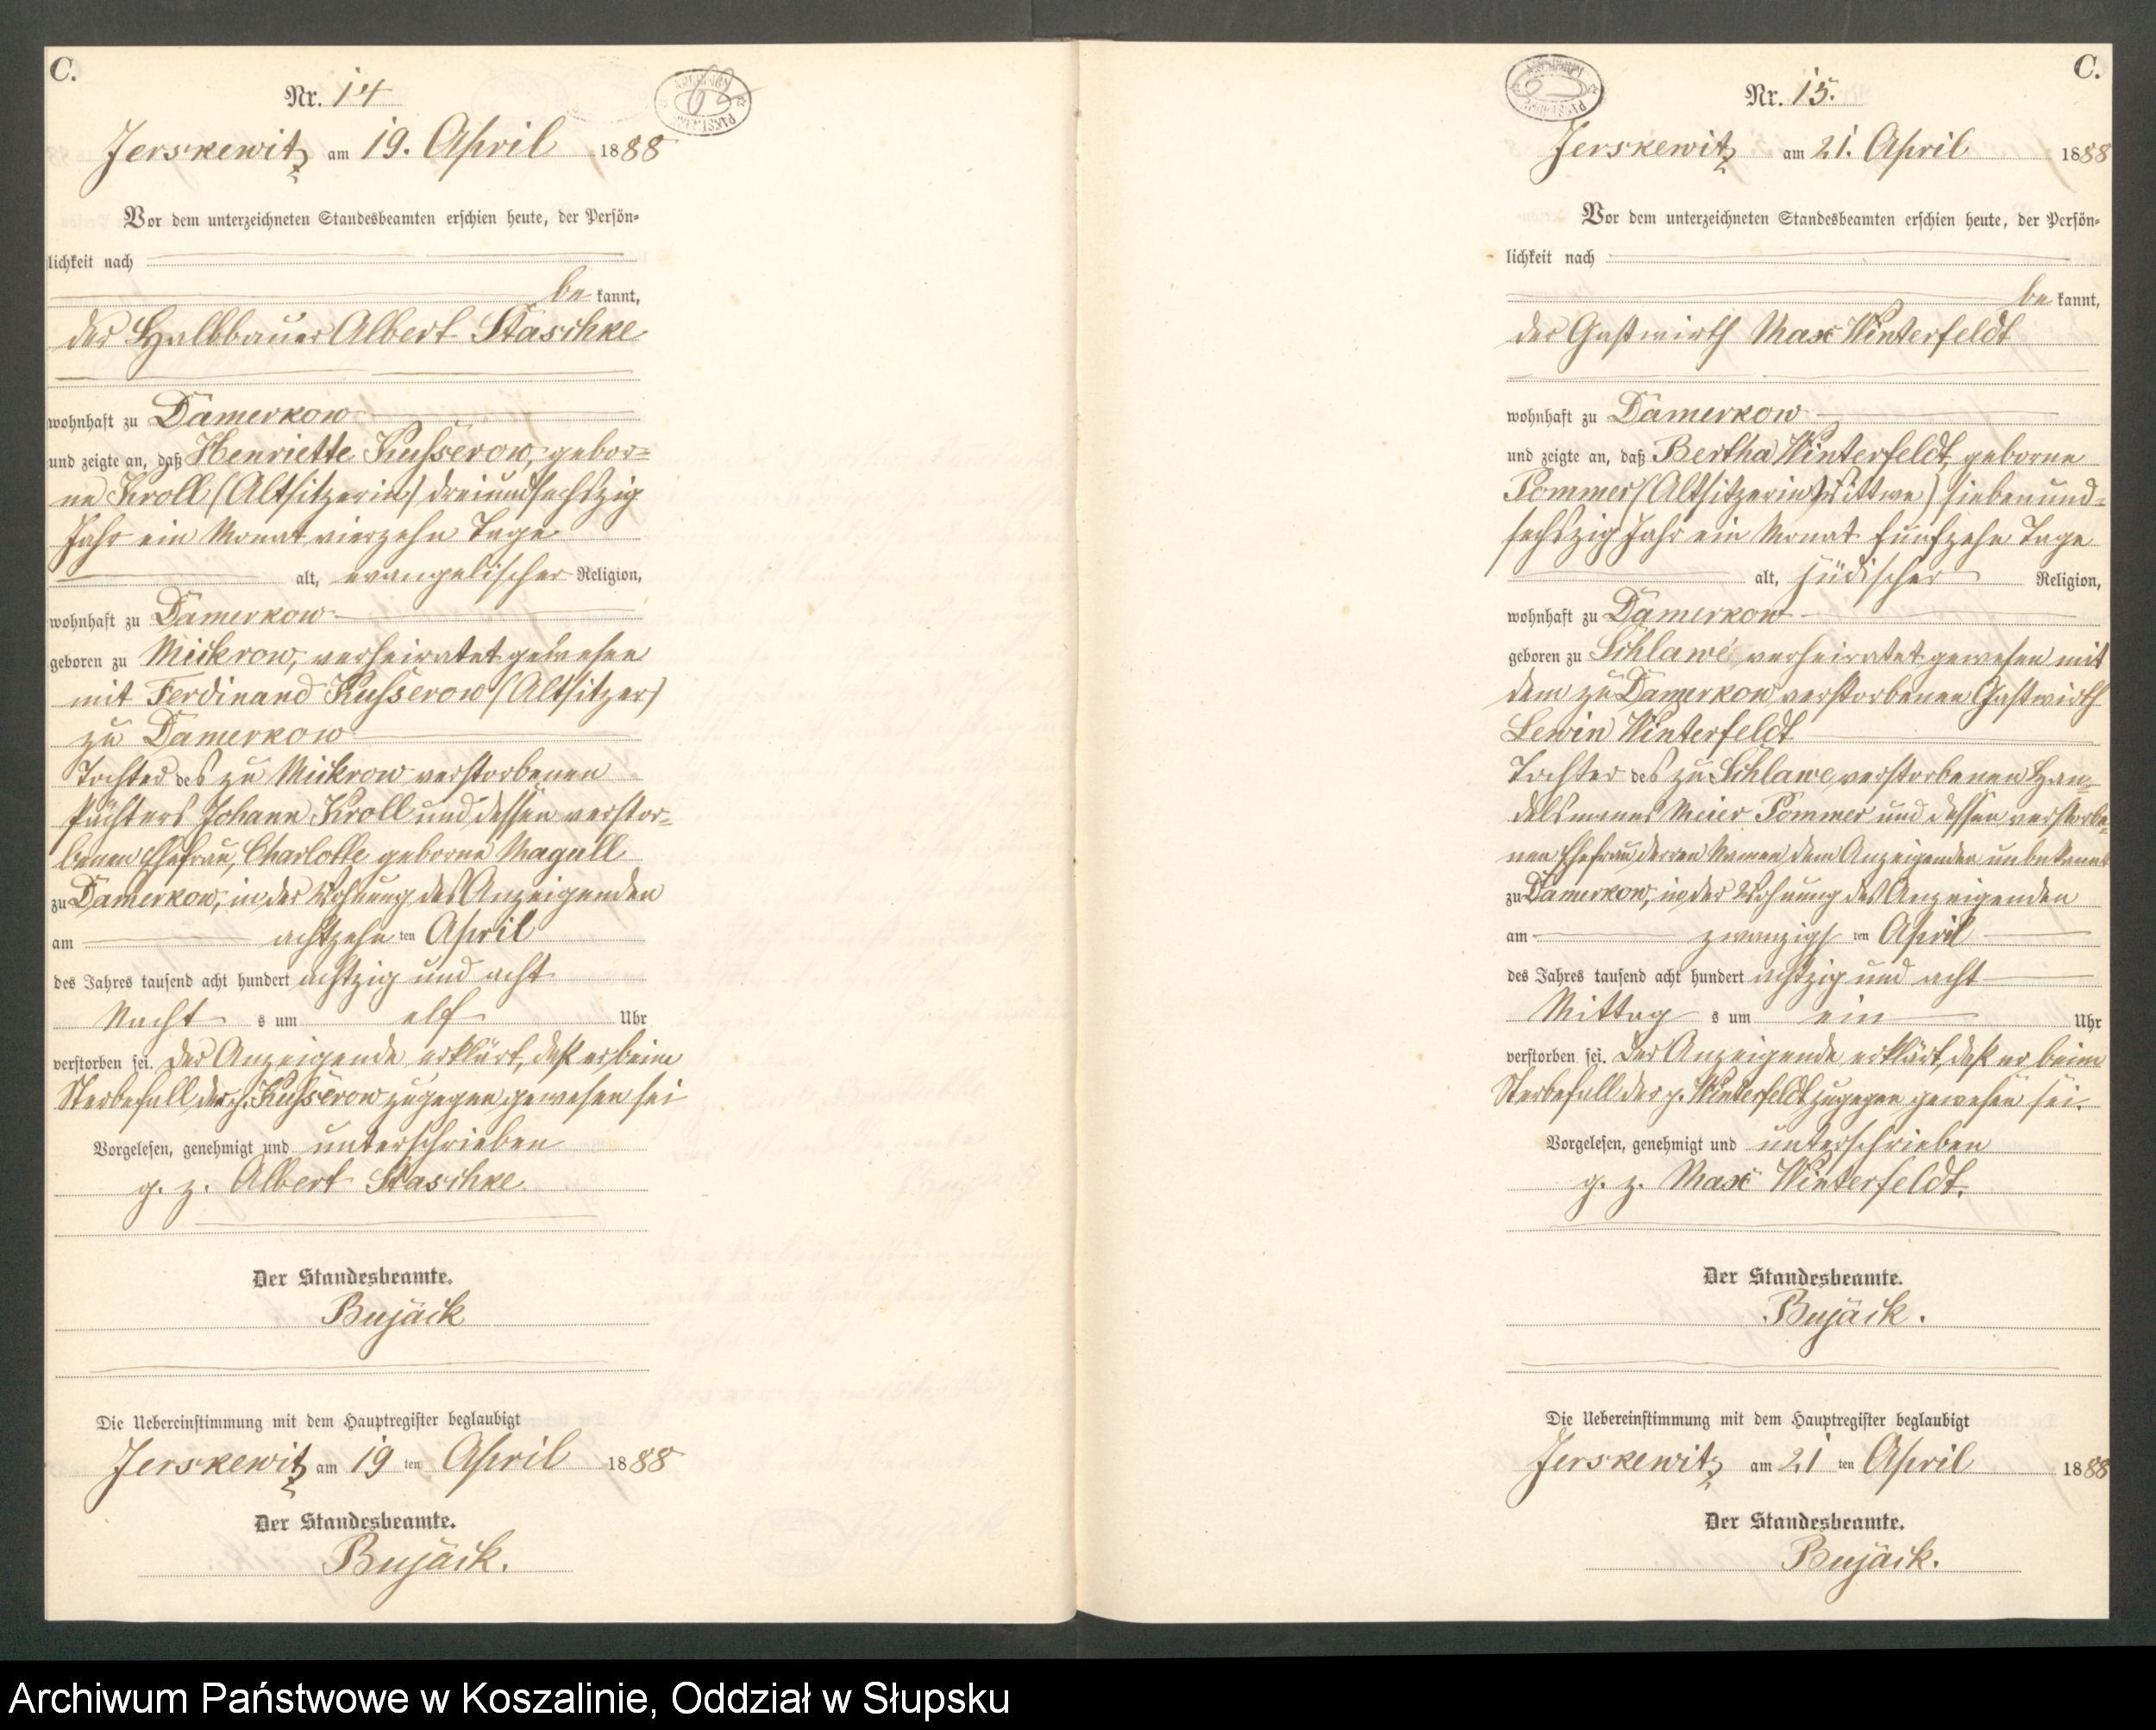 C.
Nr. 14
Jerskewitz am 19. April 1888
Vor dem unterzeichneten Standesbeamten erschien heute, der Persön-
lichkeit nach
be kannt,
der Halbbauer Albert Staschke
wohnhaft zu Damerkow
und zeigte an, daß Henriette Kusserow, gebor-
ne Kroll (Altsitzerin) dreiundsechszig
Jahr ein Monat vierzehn Tage
alt, evangelischer Religion,
wohnhaft zu Damerkow
geboren zu Mickrow, verheiratet gewesen
mit Ferdinand Kusserow (Altsitzer)
zu Damerkow
Tochter des zu Mickrow verstorbenen
Pächters Johann Kroll und dessen verstor-
benen Ehefrau, Charlotte geborne Magull
zu Damerkow, in der Wohnung des Anzeigenden
am achtzehn ten April
des Jahres tausend acht hundert achtzig und acht
Nacht s um elf Uhr
verstorben sei. Der Anzeigende erklärt, daß er beim
Sterbefall der p. Kusserow zugegen gewesen sei
Vorgelesen, genehmigt und unterschrieben
g. z. Albert Staschke
Der Standesbeamte.
Bujäck
Die Uebereinstimmung mit dem Hauptregister beglaubigt
Jerskewitz am 19 ten April 1888
Der Standesbeamte.
Bujäck.
C.
Nr. 15.
Jerskewitz am 21. April 1888
Vor dem unterzeichneten Standesbeamten erschien heute, der Persön-
lichkeit nach
be kannt,
der Gastwirth Max Winterfeldt
wohnhaft zu Damerkow
und zeigte an, daß Bertha Winterfeldt, geborne
Pommer (Altsitzerin Wittwe) siebenund-
sechszig Jahr ein Monat fünfzehn Tage
alt, jüdischer Religion,
wohnhaft zu Damerkow
geboren zu Schlawe verheiratet gewesen mit
dem zu Damerkow verstorbenen Gastwirth
Lewin Winterfeldt
Tochter des zu Schlawe verstorbenen Han-
delsmanns Meier Pommer und dessen verstorbe-
nen Ehefrau deren Namen dem Anzeigenden unbekannt
zu Damerkow, in der Wohnung des Anzeigenden
am zwanzigs ten April
des Jahres tausend acht hundert achtzig und acht
Mittag s um ein Uhr
verstorben sei. Der Anzeigende erklärt, daß er beim
Sterbefall der p. Winterfeldt zugegen gewesen sei.
Vorgelesen, genehmigt und unterschrieben
g. z. Max Winterfeldt.
Der Standesbeamte.
Bujäck.
Die Uebereinstimmung mit dem Hauptregister beglaubigt
Jerskewitz am 21 ten April 1888
Der Standesbeamte.
Bujäck.
Archiwum Państwowe w Koszalinie, Oddział w Słupsku